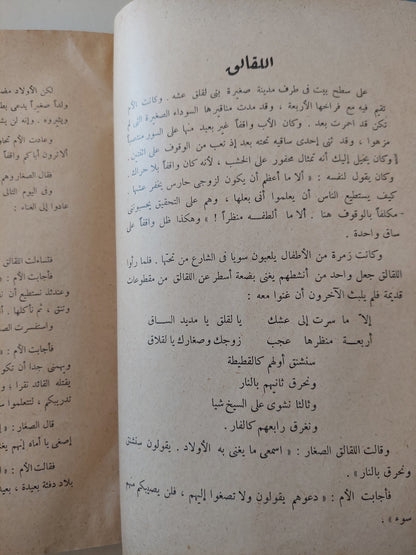 اللقالق
على سطح بيت فى طرف مدينة صغيرة بنى لقلق عشه . وكانت الأم
تقيم فيه مع فراخها الأربعة ، وقد مدت مناقيرها السوداء الصغيرة التى لم
تكن قد احمرت بعد . وكان الأب واقفاً غير بعيد منها على السور منتصباً
مزهوا ، وقد ثنى إحدى ساقيه تحته بعد إذ تعب من الوقوف على اثنتين
وكان يخيل إليك أنه تمثال محفور على الخشب ، لأنه كان واقفاً بلا حراك .
وكان يقول لنفسه : « ألا ما أعظم أن يكون لزوجى حارس يخفر عشها .
كيف يستطيع الناس أن يعلموا أنى بعلها ، وهم على التحقيق يحسبوننى
مكلفاً بالوقوف هنا . ألا ما ألطفه منظراً ! » وهكذا ظل واقفاً على
ساق واحدة .
وكانت زمرة من الأطفال يلعبون سويا فى الشارع من تحتها . فلما رأوا
اللقالق جعل واحد من أنشطهم يغنى بضعة أسطر عن اللقالق من مقطوعات
قديمة فلم يلبث الآخرون أن غنوا معه :
إلا ما سرت إلى عشك يا لقلق يا مديد الساق
أربعة منظرها عجب زوجك وصغارك يا لقلاق
سنشنق أولهم كالقطيطة
ونحرق ثانيهم بالنار
وثالثا نشوى على السيخ شيا
ونغرق رابعهم كالفار .
وقالت اللقالق الصغار : « اسمعى ما يغنى به الأولاد . يقولون سنشنق
ونحرق بالنار » .
فأجابت الأم : « دعوهم يقولون ولا تصغوا إليهم ، فلن يصيبكم منهم
سوء » .
لكن الأولاد
ولداً صغيراً يدعى
وعادت الأم
ألا ترون أباكم واقفاً
فقال الصغار
وفى اليوم التالى
عادوا إلى الغناء :
فتساءلت اللقالق
فأجابت الأم :
وعندئذ نستطيع أن
ثم نأكلها .
واستفسرت الصغار
فأجابت الأم :
ويهمنى جدا أن
يقتله القائد نقرا ؛
تدريبكم ، لتتعلموا
قال الصغار :
إصغى يا أماه إنهم
فقالت الأم :
بلاد دفئة بعيدة ، بعيدة